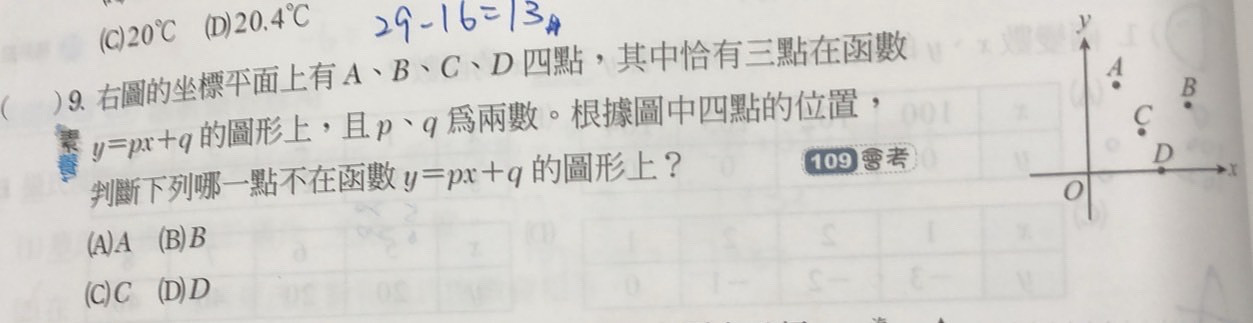 (C)20℃ (D)20.4℃
29-16=13
( )9. 右圖的坐標平面上有A、B、C、D四點，其中恰有三點在函數
素養 y=px+q的圖形上，且p、q為兩數。根據圖中四點的位置，
判斷下列哪一點不在函數y=px+q的圖形上？ 109會考
(A)A (B)B
(C)C (D)D
y
A
B
C
D
x
O